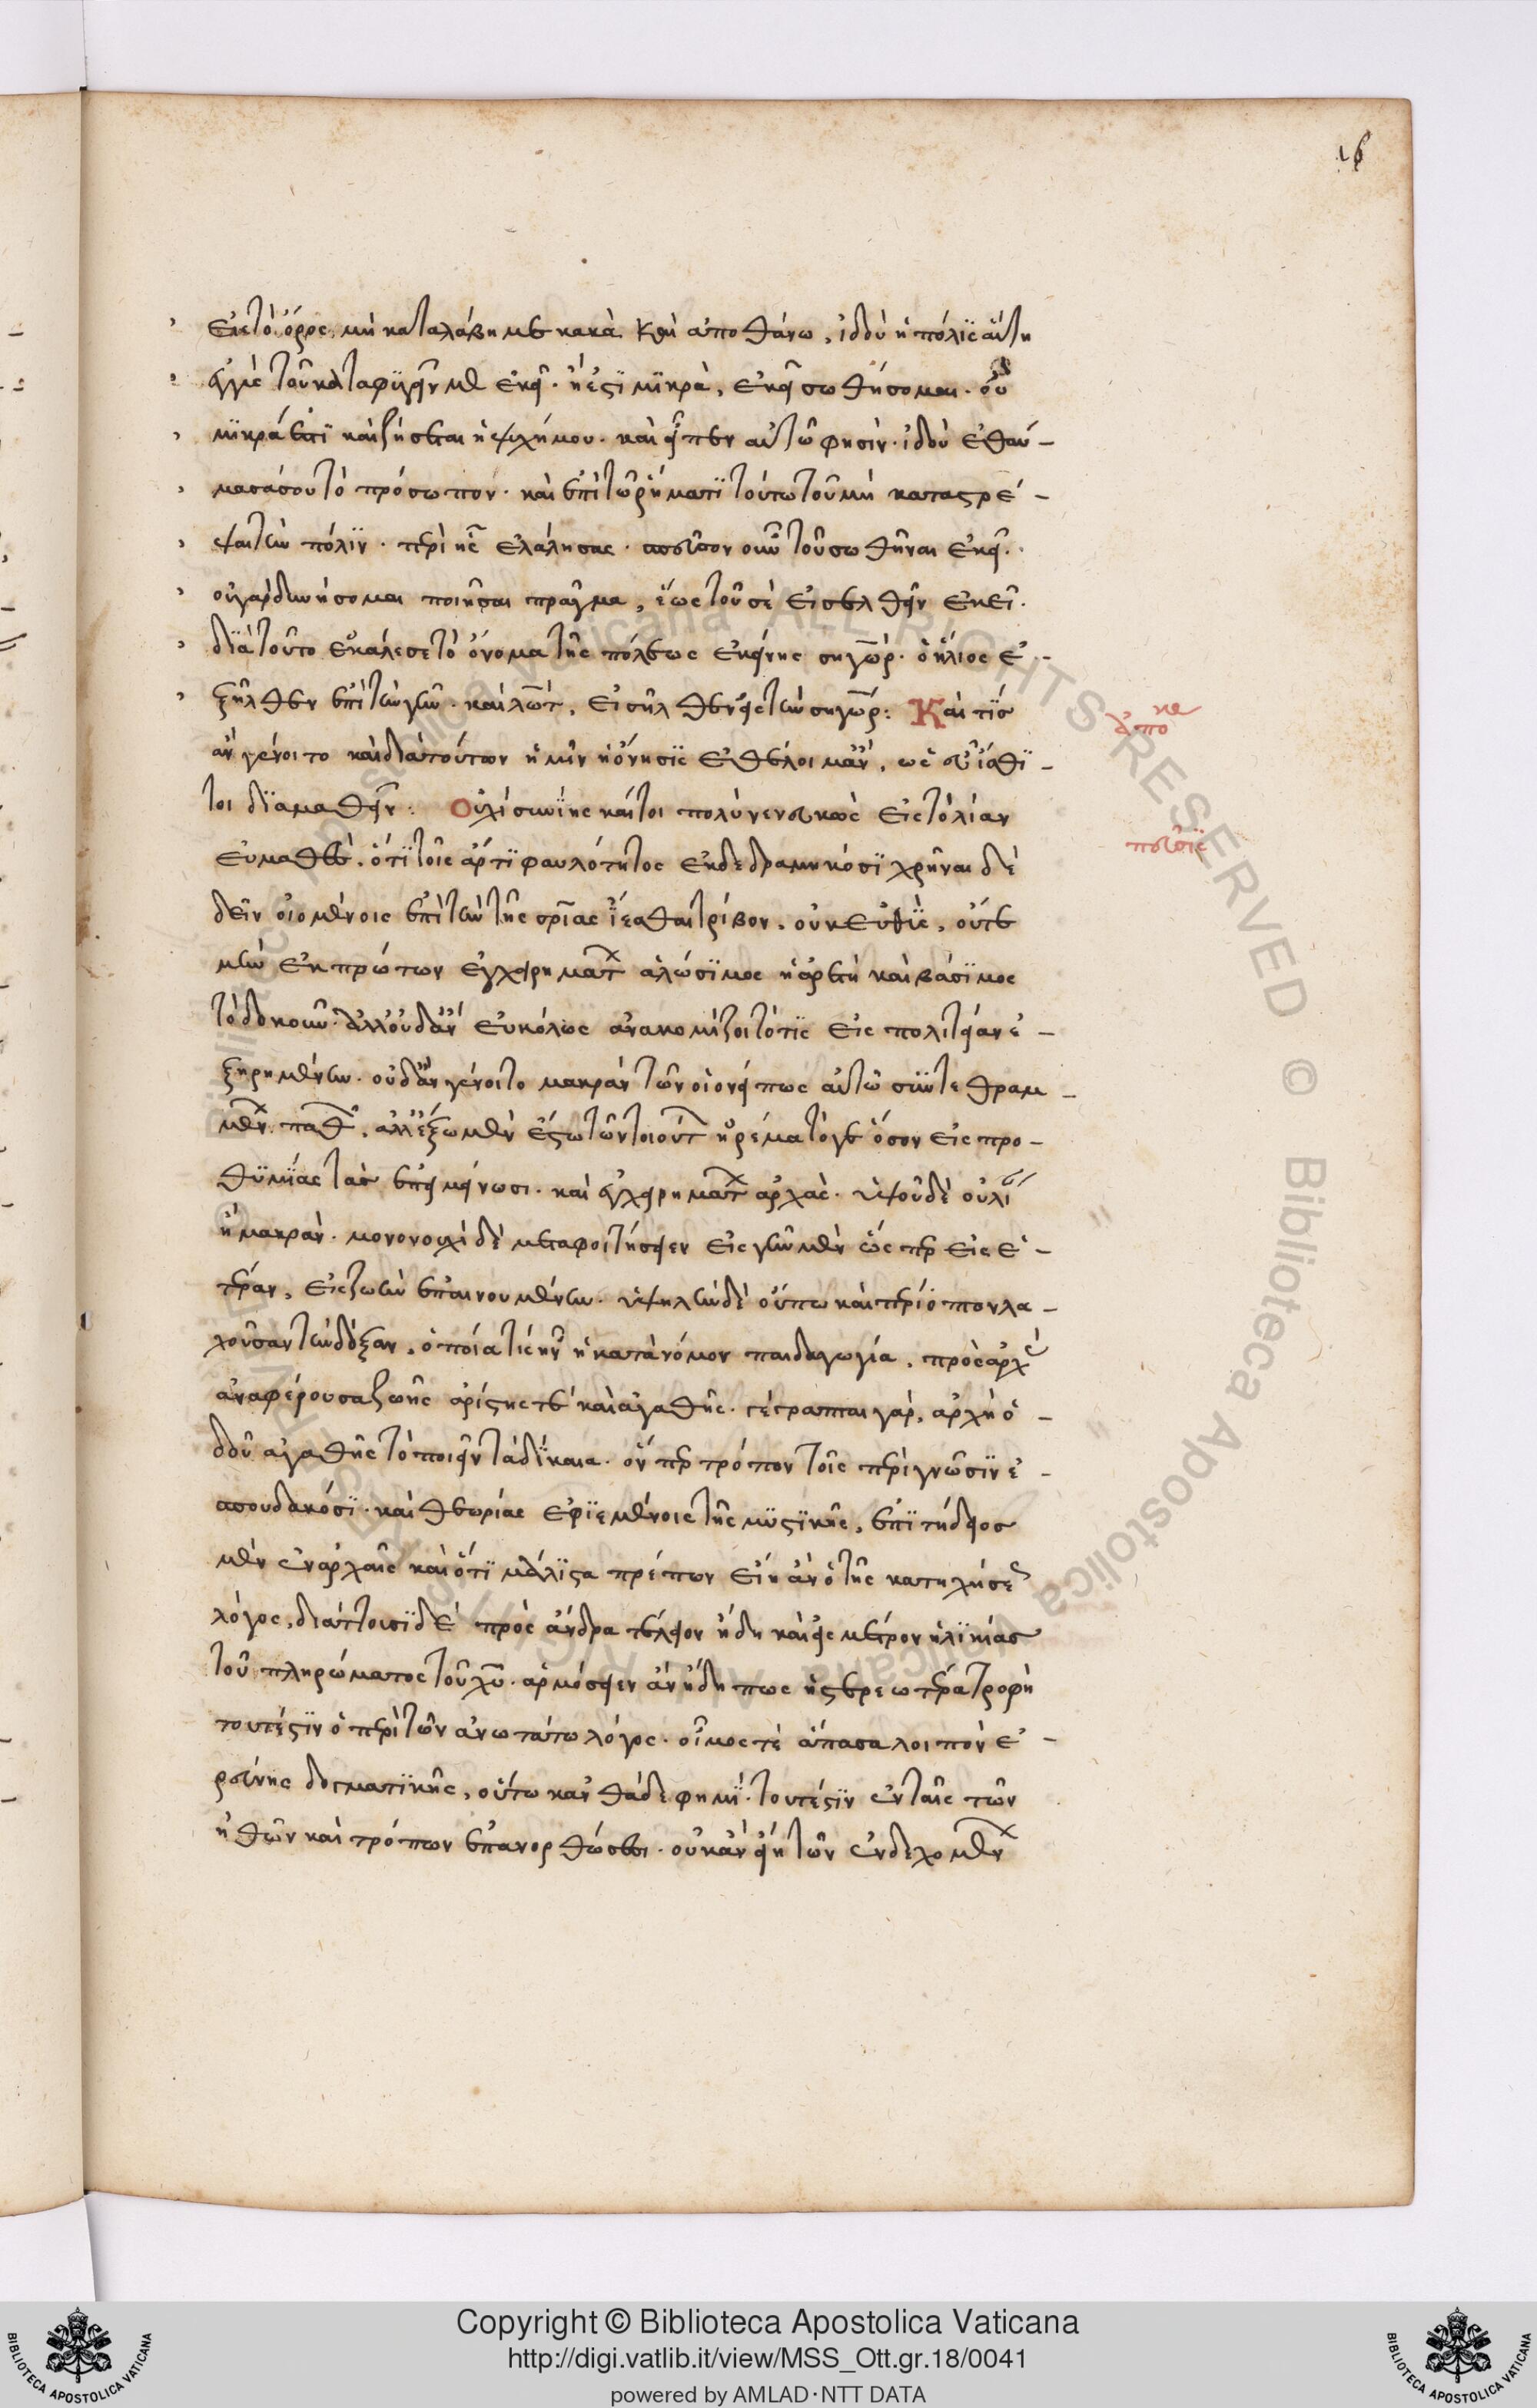 16
εἰς τὸ ὄρος, μὴ καταλάβη με κακὰ καὶ ἀποθάνω, ἰδοὺ ἡ πόλις αὕτη
ἐγγὺς τοῦ καταφυγεῖν με ἐκεῖ· ἥ ἐστι μικρὰ, ἐκεῖ σωθήσομαι· οὐ
μικρά ἐστι καὶ ζήσεται ἡ ψυχή μου· καὶ εἶπεν αὐτῶ φησὶν· ἰδοὺ ἐθαύ-
μασά σου τὸ πρόσωπον· καὶ ἐπὶ τῶ ῥήματι τούτω τοῦ μὴ καταστρέ-
ψαι τὴν πόλιν· περὶ ἧς ἐλάλησας· σπεῦσον οὖν τοῦ σωθῆναι ἐκεῖ·
οὐ γὰρ δυνήσομαι ποιῆσαι πρᾶγμα, ἕως τοῦ σὲ εἰσελθεῖν ἐκεῖ·
διὰ τοῦτο ἐκάλεσε τὸ ὄνομα τῆς πόλεως ἐκείνης σηγώρ· ὁ ἥλιος ἐ-
ξῆλθεν ἐπὶ τὴν γῆν· καὶ λὼτ, εἰσῆλθεν εἰς τὴν σηγώρ: Καὶ τίς
ἂν γένοιτο καὶ διὰ τούτων ἡμῖν ἡ ὄνησις ἐθέλοιμ' ἂν, ὡς οὖν ἴσθι
τοι διαμαθεῖν: Οὔτι συνιεὶς καίτοι πολὺ νενευκὼς εἰς τὸ λίαν
εὐμαθὲς, ὅτι τοῖς ἄρτι φαυλότητος ἐκδεδραμηκόσι χρῆναι δὲ
δεῖν οἰομένοις ἐπὶ τὴν τῆς σωτηρίας ἵεσθαι τρίβον, οὐκ εὐθὺς, οὔτε
μὴν ἐκ πρώτων ἐγχειρημάτων ἁλώσιμος ἡ ἀρετὴ καὶ βάσιμος
τὸ δοκοῦν· ἀλλ' οὐδ' ἂν εὐκόλως ἀνακομίζοιτό τις εἰς πολιτείαν ἐ-
ξηρημένην· οὐδ' ἂν γένοιτο μακρὰν τῶν οἱονεί πως αὐτῶ συντεθραμ-
μένων παθῶν, ἀλλ' ἔξω μὲν ἔξω τῶν τοιούτων ἠρέμα τό γε ὅσον εἰς προ-
θυμίας τὰς ἐπ' ἀμείνωσι· καὶ ἐγχειρημάτων ἀρχὰς· ὕψου δὲ οὔτι
ἢ μακρὰν· μονονουχὶ δὲ μεταφοιτήσειεν εἰς γῆν μὲν ὥσπερ εἰς ἑ-
τέραν, εἰς ζωὴν ἐπαινουμένην· ὑψηλὴν δὲ οὔπω καὶ περίοπτον λα-
χοῦσαν τὴν δόξαν, ὁποία τίς ἦν ἡ κατὰ νόμον παιδαγωγία, πρὸς ἀρχὰς
ἀναφέρουσα ζωῆς ἀρίστης τε καὶ ἀγαθῆς· γέγραπται γὰρ, ἀρχὴ ὁ-
δοῦ ἀγαθῆς τὸ ποιεῖν τὰ δίκαια· ὅνπερ τρόπον τοῖς περὶ γνῶσιν ἐ-
σπουδακόσι· καὶ θεωρίας ἐφιεμένοις τῆς μυστικῆς, ἐπιτήδειος
μὲν ἐν ἀρχαῖς καὶ ὅτι μάλιστα πρέπων εἴη ἂν ὁ τῆς κατηχήσεως
λόγος, διάττουσι δὲ πρὸς ἄνδρα τέλειον ἤδη καὶ εἰς μέτρον ἡλικίας
τοῦ πληρώματος τοῦ χυ· ἁρμόσειεν ἂν ἤδη πως ἡ στερεωτέρα τροφὴ
τουτέστιν ὁ περὶ τῶν ἀνωτάτω λόγος· οἶμος τὲ ἅπασα λοιπὸν ἐ-
ρεύνης δογματικῆς, οὕτω κἀνθάδε φημί· τουτέστιν ἐν ταῖς τῶν
ἠθῶν καὶ τρόπων ἐπανορθώσεσι· οὐκ ἂν εἴη τῶν ἐνδεχομένων
Copyright © Biblioteca Apostolica Vaticana
http://digi.vatlib.it/view/MSS_Ott.gr.18/0041
powered by AMLAD·NTT DATA